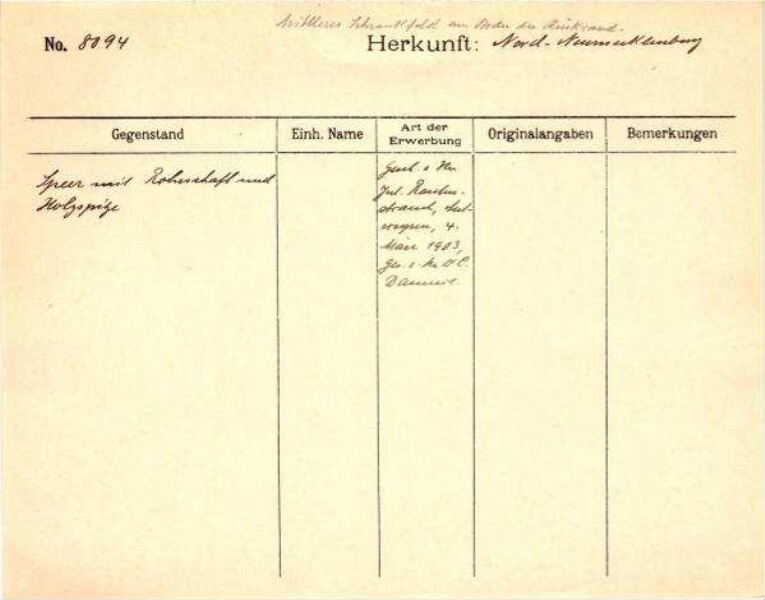 Mittleres Schrankfeld am Boden der Rückwand.
No. 8094 Herkunft: Nord-Neumecklenburg
Gegenstand Einh. Name Art der Erwerbung Originalangaben Bemerkungen
Speer mit Rohrschaft und
Holzspitze
Jul.
4.
März 1903,
Ges. v. Hr.